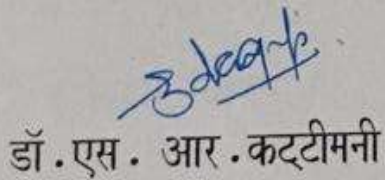 डॉ.एस. आर.कट्टीमनी